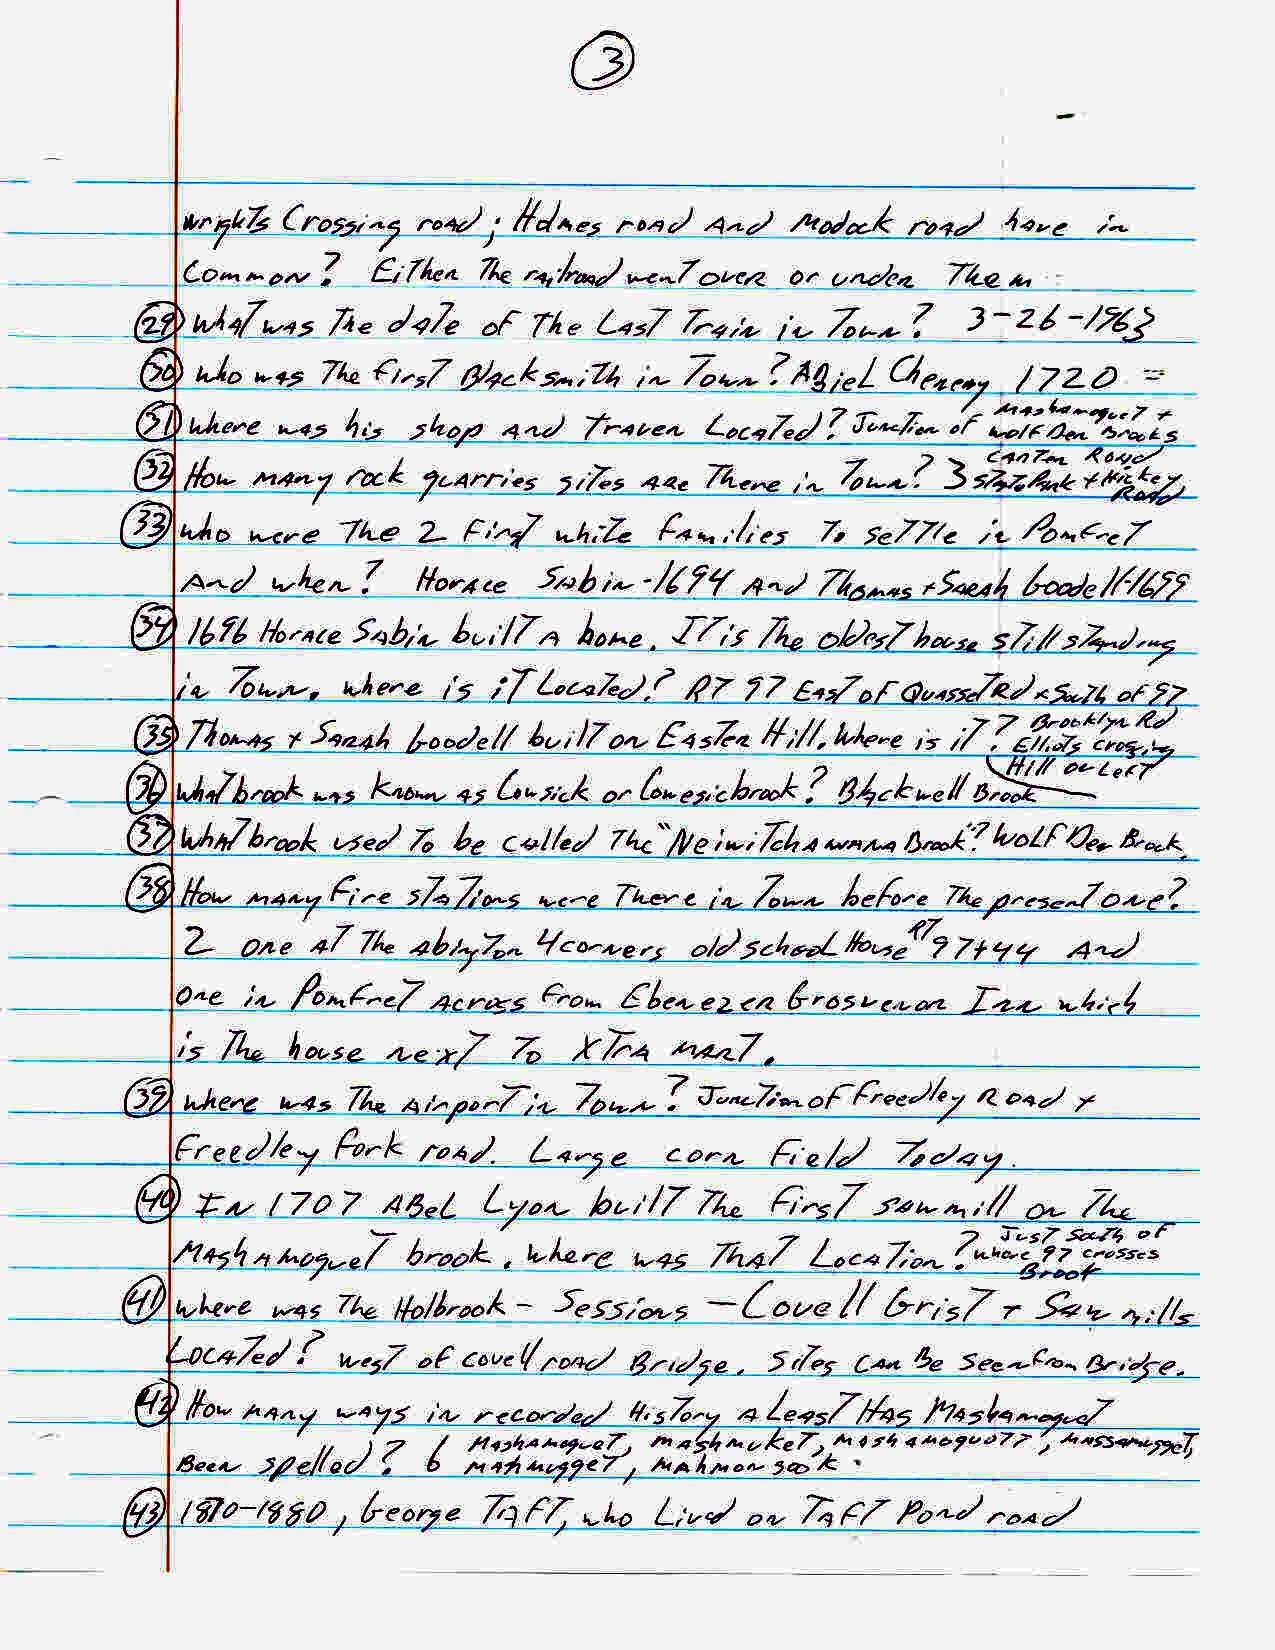 3
Wrights Crossing road; Holmes road And Modock road have in
Common? Either The railroad went over or under Them
29 What was The date of The Last Train in Town? 3-26-1963
30 who was The first Blacksmith in Town? ABieL Cheneny 1720
31 where was his shop And Traven Located? Junction of Mashamoquet + Wolf Den Brooks
32 How many rock quarries sites are There in Town? 3 Canton Road State Park + Hickey Road
33 who were The 2 first white families To settle in Pomfret
And when? Horace Sabin-1694 And Thomas + Sarah Goodell-1699
34 1696 Horace Sabin built A home. It is The oldest house still standing
in Town. where is it Located? RT 97 East of Quasset Rd + South of 97
35 Thomas + Sarah Goodell built on Easter Hill. Where is it? Brooklyn Rd Elliots crossing Hill on Left
36 what brook was Known as Cowsick or Cowesicbrook? Blackwell Brook
37 What brook used To be called The "Neiwitchawana Brook"? Wolf Den Brook.
38 How many fire stations were There in Town before The present one?
2 one at The Abington 4 corners old school House RT 97+44 And
one in Pomfret Across from Ebenezer Grosvenor Inn which
is The house next To XTRA MART.
39 where was The Airport in Town? Junction of Freedley Road +
Freedley Fork road. Large corn Field Today.
40 In 1707 ABeL Lyon built The first sawmill on The
Mashamoquet brook. Where was That Location? Just South of where 97 crosses Brook
41 where was The Holbrook - Sessions - Covell Grist + Saw mills
Located? west of covell road Bridge. Sites can Be Seen from Bridge.
42 How many ways in recorded History aLeast Has Mashamoquet
Been spelled? 6 Mashamoquet, mashmuket, mashamoquott, massamugget, mahmugget, mahmonsook.
43 1870-1880, George Taft, who Lived on Taft Pond road